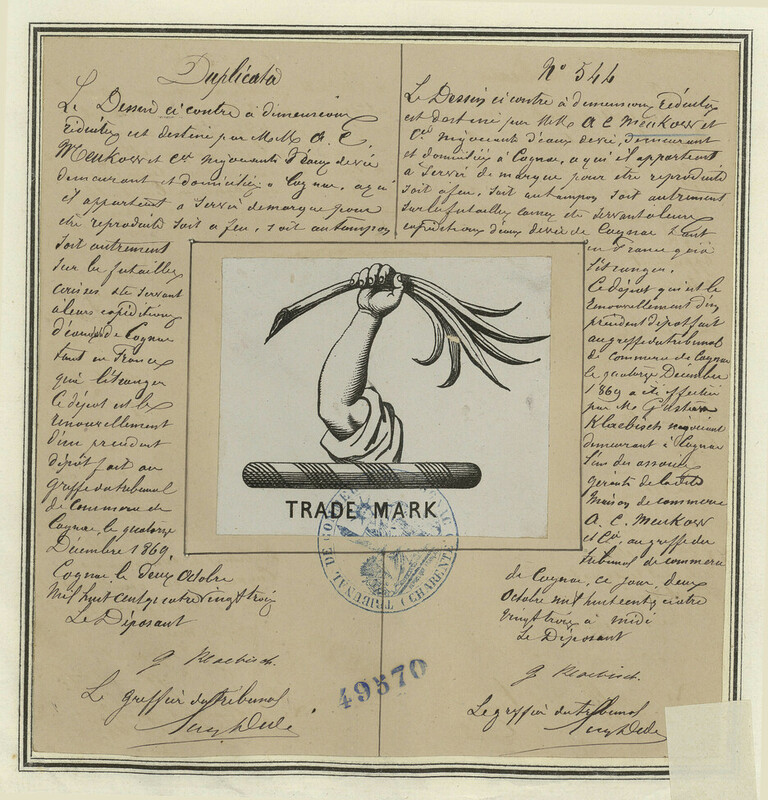 Duplicata
Le Dessin ci contre à dimensions
réduites est destiné par M.M. A. C.
Meukow et Cie négociants d'eaux de vie
demeurant et domiciliés à Cognac, à qui
il appartient à servir de marque pour
être reproduite soit à feu, soit au tampon
soit autrement
sur les futailles
caisses etc servant
à leurs expéditions
d'eaux de vie de Cognac
tant en France
qu'à l'étranger
Ce dépôt est le
renouvellement
d'un précédent
dépôt fait au
greffe du tribunal
de Commerce de
Cognac le quatorze
Décembre 1869.
Cognac le deux Octobre
mil huit cent quatre vingt trois
Le Déposant
G Klaebisch
Le greffier du tribunal
No 544
Le Dessin ci contre à dimensions réduites
est destiné par M.M. A. C. Meukow et
Cie négociants d'eaux de vie, demeurant
et domiciliés à Cognac, à qui il appartient
à servir de marque pour être reproduite
soit à feu, soit au tampon soit autrement
sur les futailles caisses etc servant à leurs
expéditions d'eaux de vie de Cognac tant
en France qu'à
l'étranger.
Ce dépôt qui est le
renouvellement d'un
précédent dépôt fait
au greffe du tribunal
de commerce de Cognac
le quatorze Décembre
1869 a été effectué
par Mr Gustave
Klaebisch négociant
demeurant à Cognac
l'un des associés
gérants de la dite
maison de commerce
A. C. Meukow
et Cie, au greffe du
tribunal de commerce
de Cognac, ce jour, deux
Octobre mil huit cent quatre
vingt trois à midi
Le Déposant
G Klaebisch
Le greffier du tribunal
TRADE MARK
TRIBUNAL DE COMMERCE COGNAC (CHARENTE)
49570